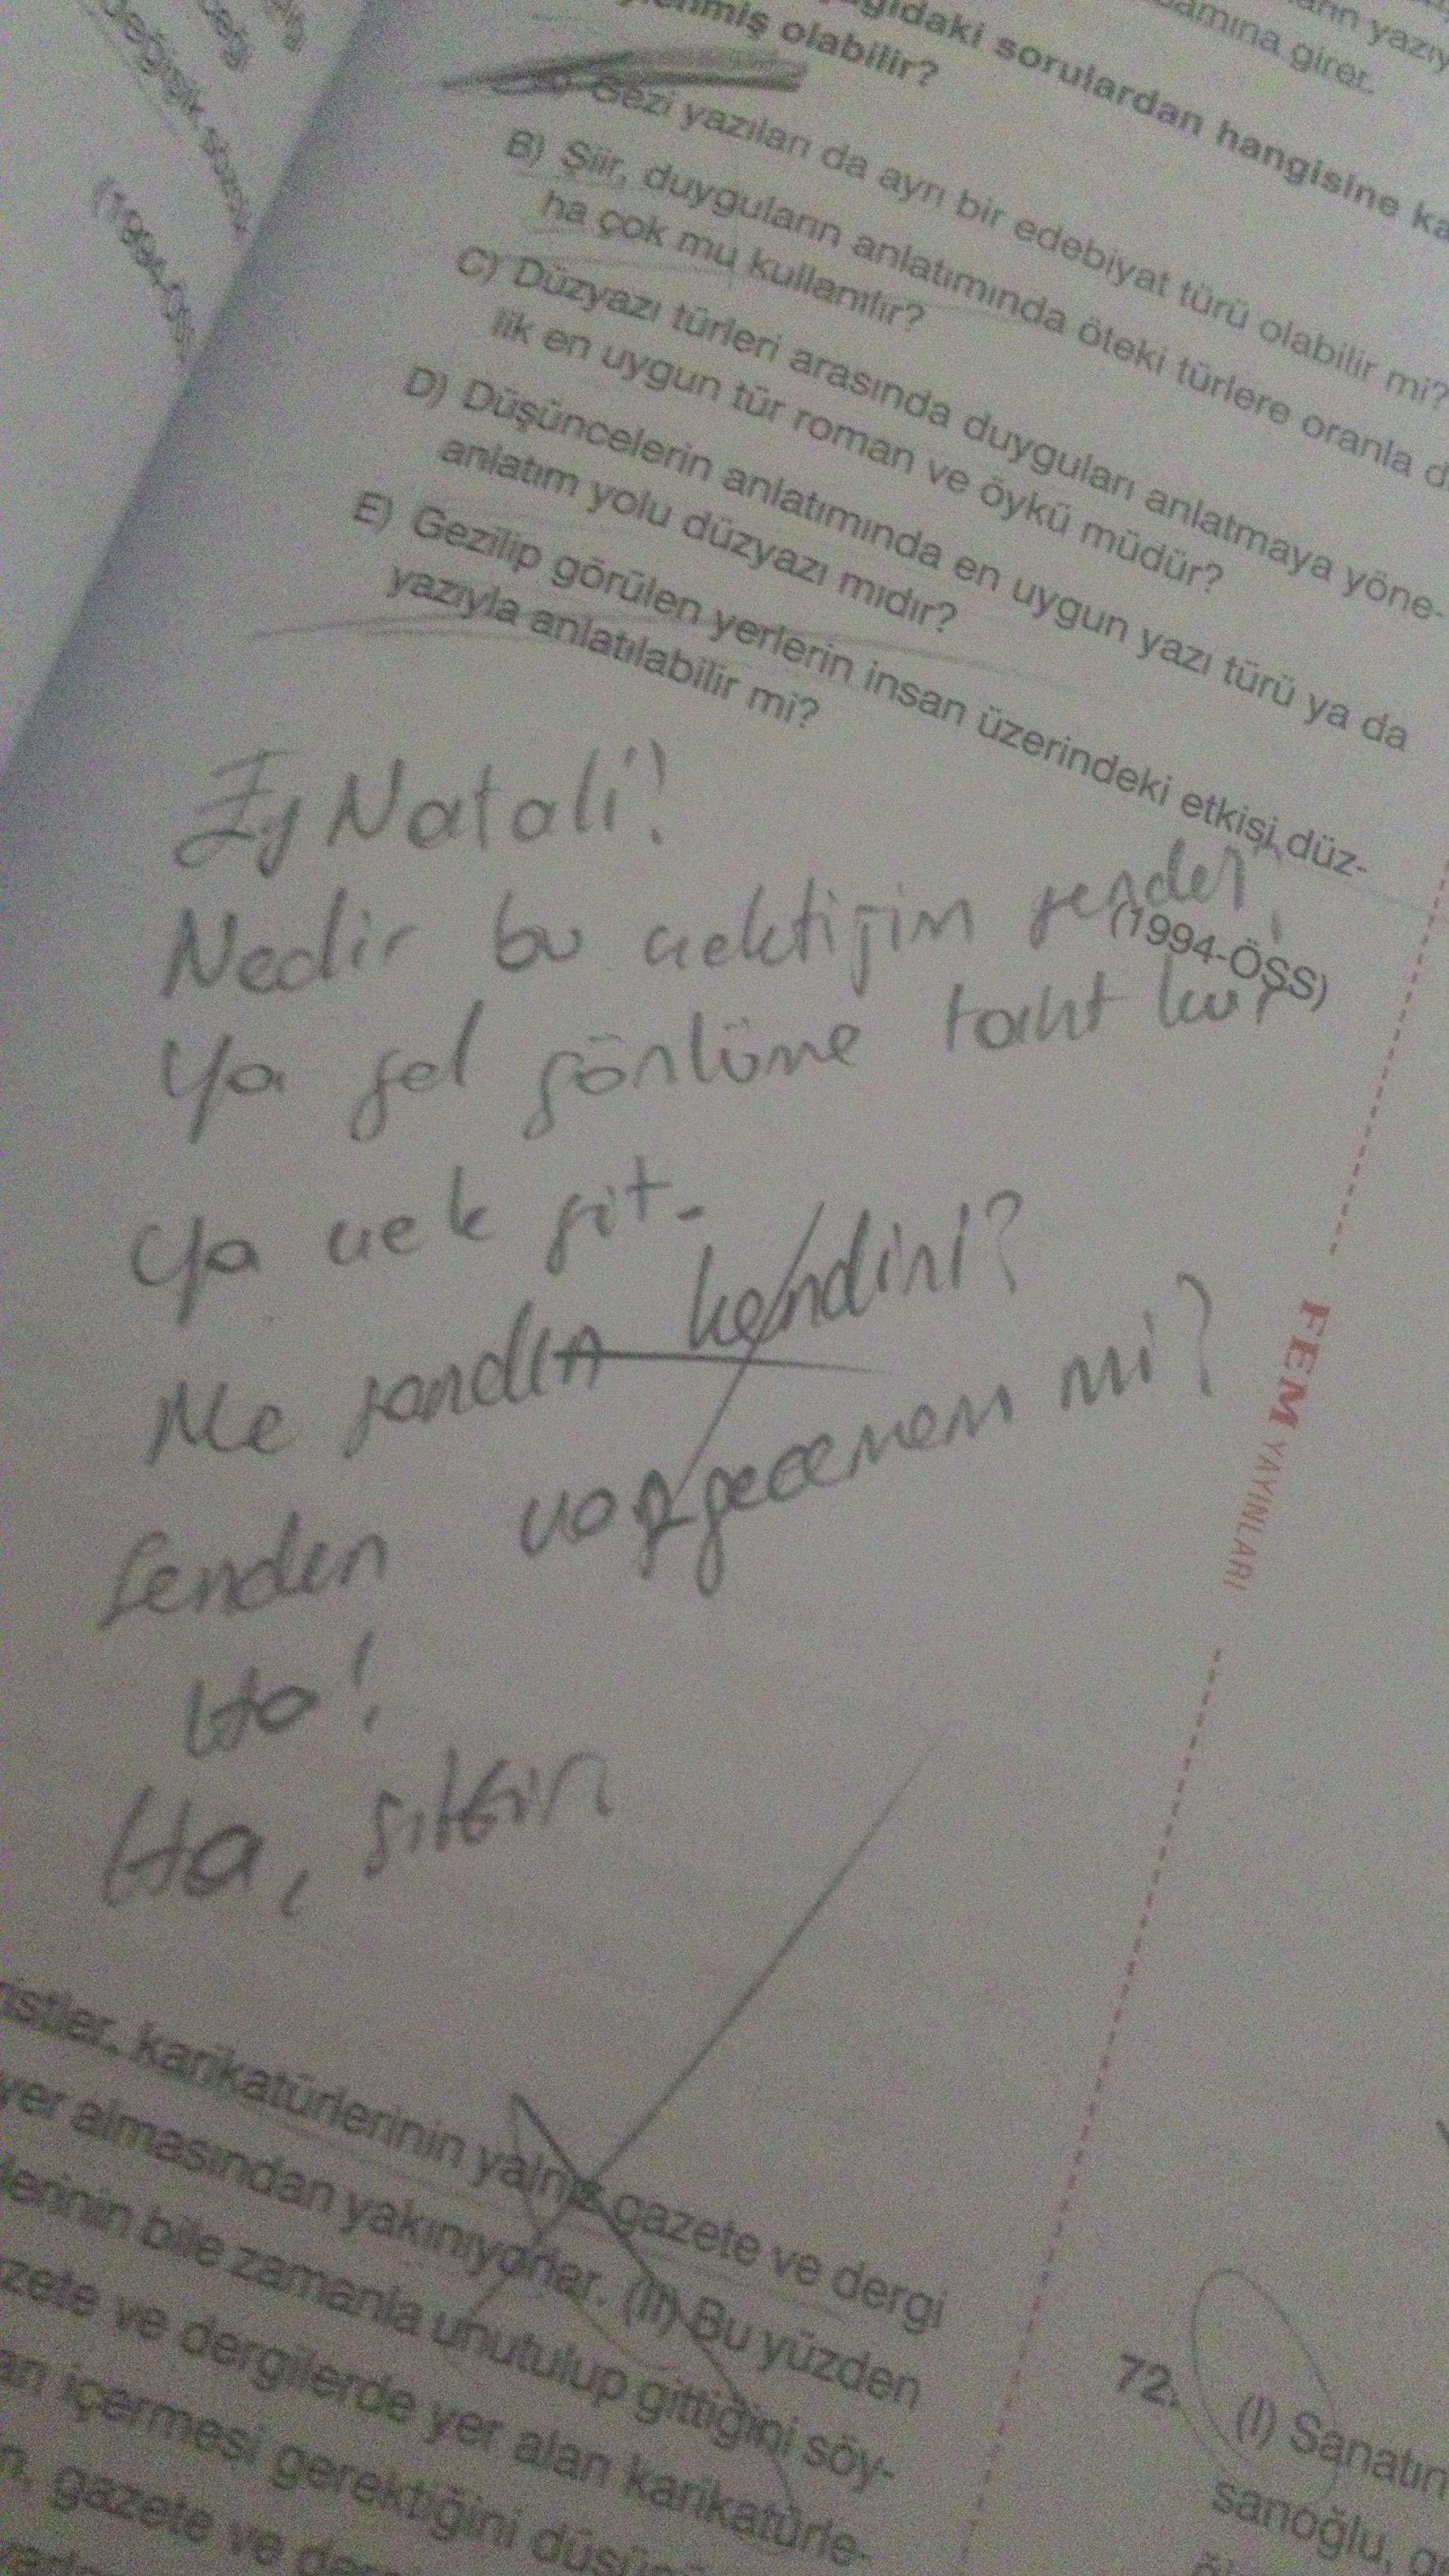 değişik sözcük
(1994-ÖSS
arın yazıy
amına girer.
ğıdaki sorulardan hangisine ka
enmiş olabilir?
Gezi yazıları da ayrı bir edebiyat türü olabilir mi?
B) Şiir, duyguların anlatımında öteki türlere oranla d
ha çok mu kullanılır?
C) Düzyazı türleri arasında duyguları anlatmaya yöne-
lik en uygun tür roman ve öykü müdür?
D) Düşüncelerin anlatımında en uygun yazı türü ya da
anlatım yolu düzyazı mıdır?
E) Gezilip görülen yerlerin insan üzerindeki etkisi düz-
yazıyla anlatılabilir mi?
(1994-ÖSS)
Ey Natali!
Nedir bu çektiğim senden!
Ya gel gönlüme taht kur
Ya çek git.
Ne sandın kendini?
Senden vazgeçemem mi?
Ha!
Ha,
FEM YAYINLARI
ristler, karikatürlerinin yalnız gazete ve dergi
yer almasından yakınıyorlar. (II) Bu yüzden
lerinin bile zamanla unutulup gittiğini söy-
zete ve dergilerde yer alan karikatürle-
an içermesi gerektiğini
n, gazete ve
72. (I) Sanatın
sanoğlu,